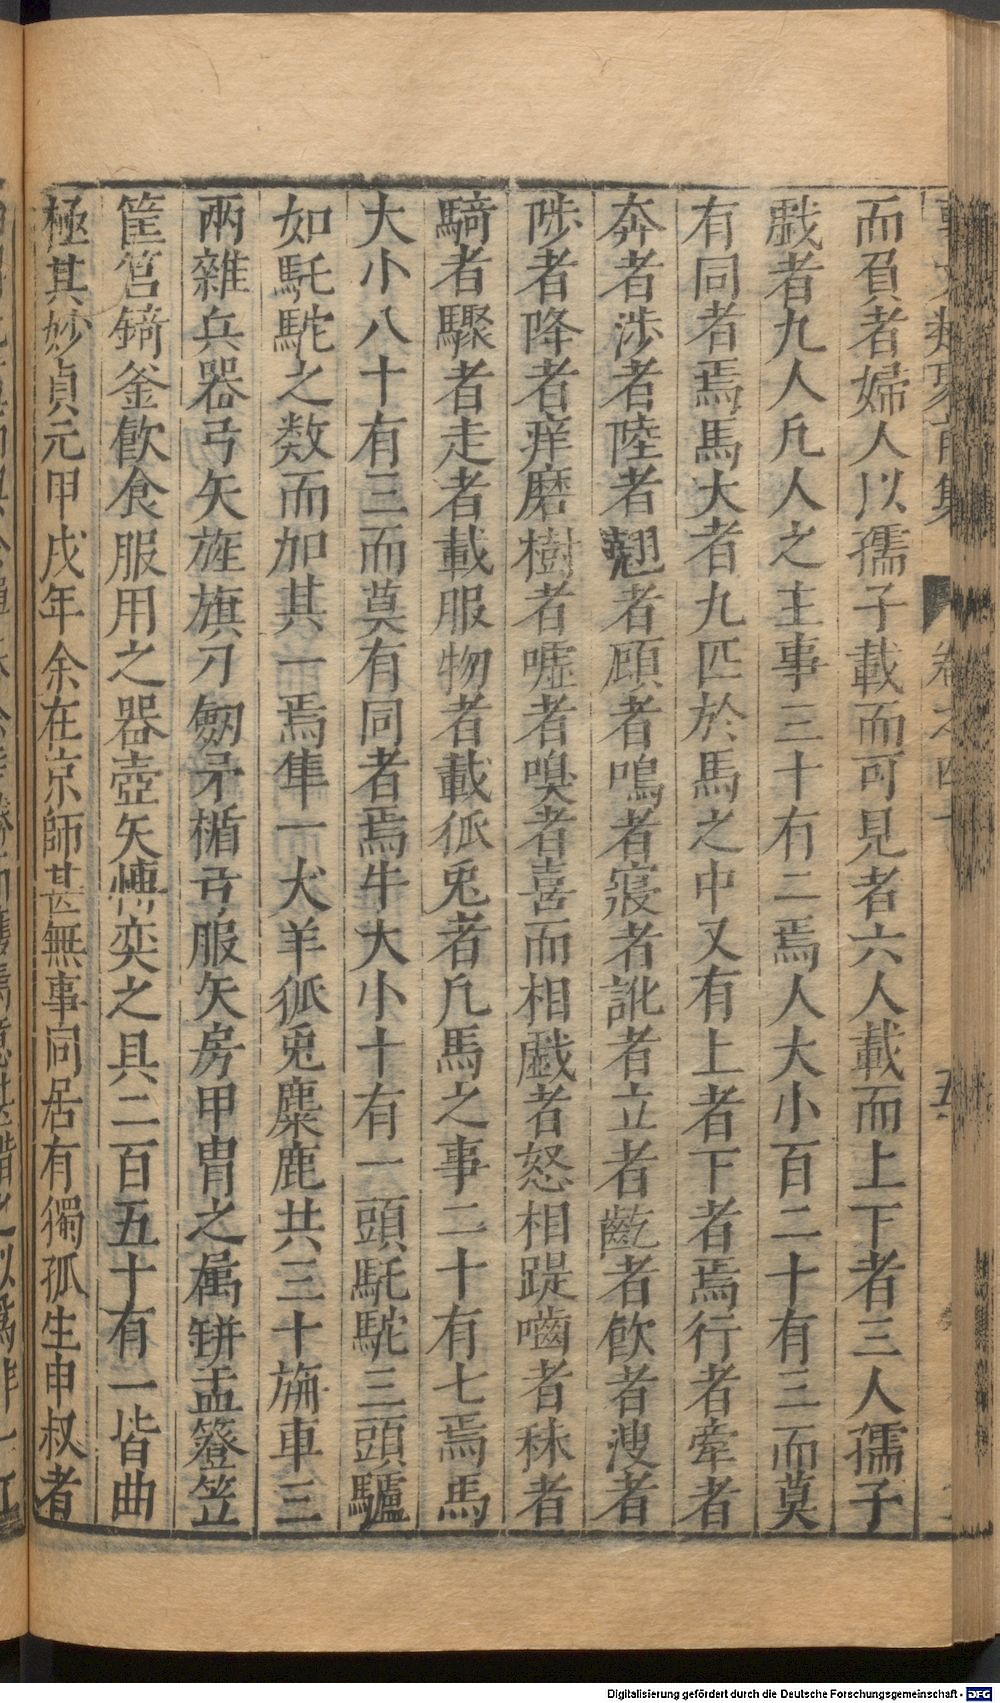 而負者婦人以孺子載而可見者六人載而上下者三人孺子
戲者九人凡人之主事三十有二焉人大小百二十有三而莫
有同者焉馬大者九匹於馬之中又有上者下者焉行者牽者
奔者涉者陸者翹者顧者鳴者寢者訛者立者齕者飲者溲者
陟者降者痒磨樹者噓者嗅者喜而相戲者怒相踶嚙者秣者
騎者驟者走者載服物者載狐兎者凡馬之事二十有七焉馬
大小八十有三而莫有同者焉牛大小十有一頭馲駝三頭驢
如馲駝之数而加其一焉隼一犬羊狐兎麋鹿共三十旃車三
兩雜兵器弓矢旌旗刀劒矛楯弓服矢房甲胄之属缾盂簦笠
筐筥錡釜飲食服用之器壺矢博奕之具二百五十有一皆曲
極其妙貞元甲戌年余在京師甚無事同居有獨孤生申叔者
卷之四十
五
Digitalisierung gefördert durch die Deutsche Forschungsgemeinschaft - DFG